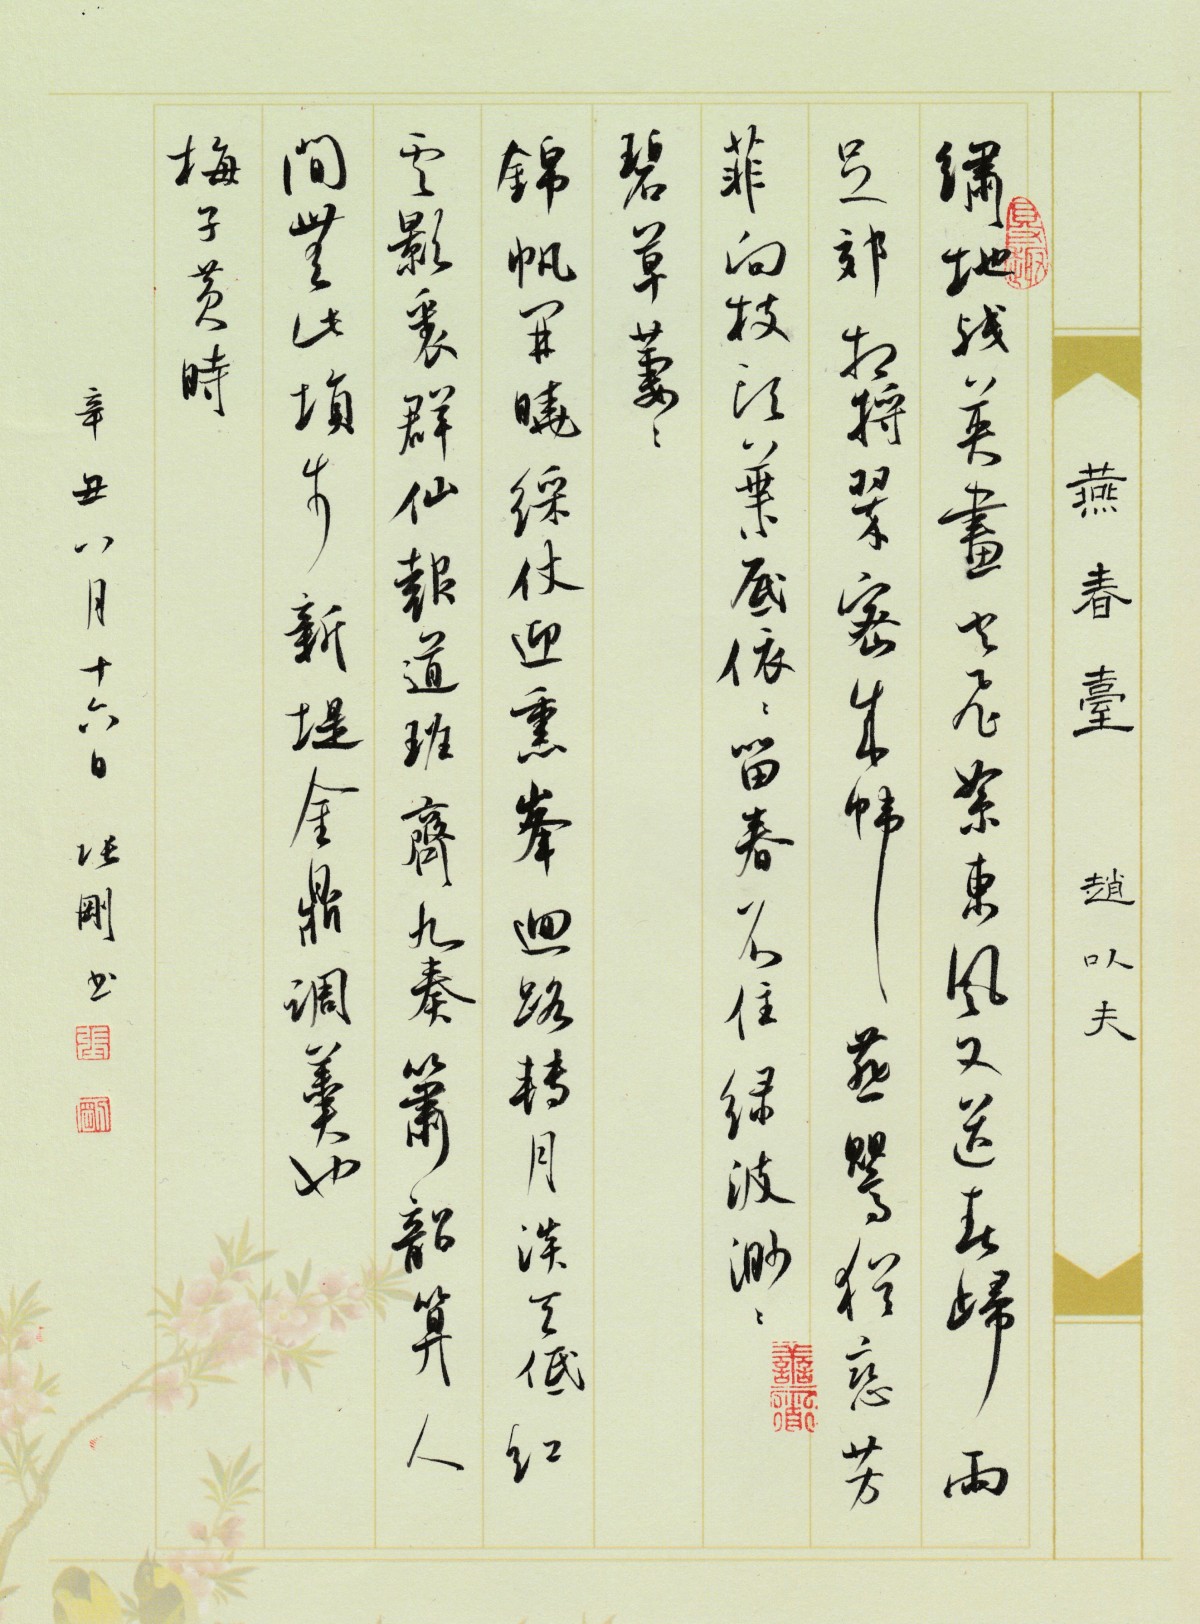 燕春臺 趙以夫
繡地殘英畫空飛絮東風又送春歸雨
足郊扣將翠密朱幃燕鶯猶戀芳
菲向枝頭葉底依〻留春不住綠波渺〻
碧草萋〻
錦帆開曉綵仗迎熏峯迴路轉月淡天低紅
雲影裏群仙報道班齊九奏簫韶算人
間無此塤步新堤金鼎調羹也
梅子黄時
辛丑八月十六日 張剛书
張
剛